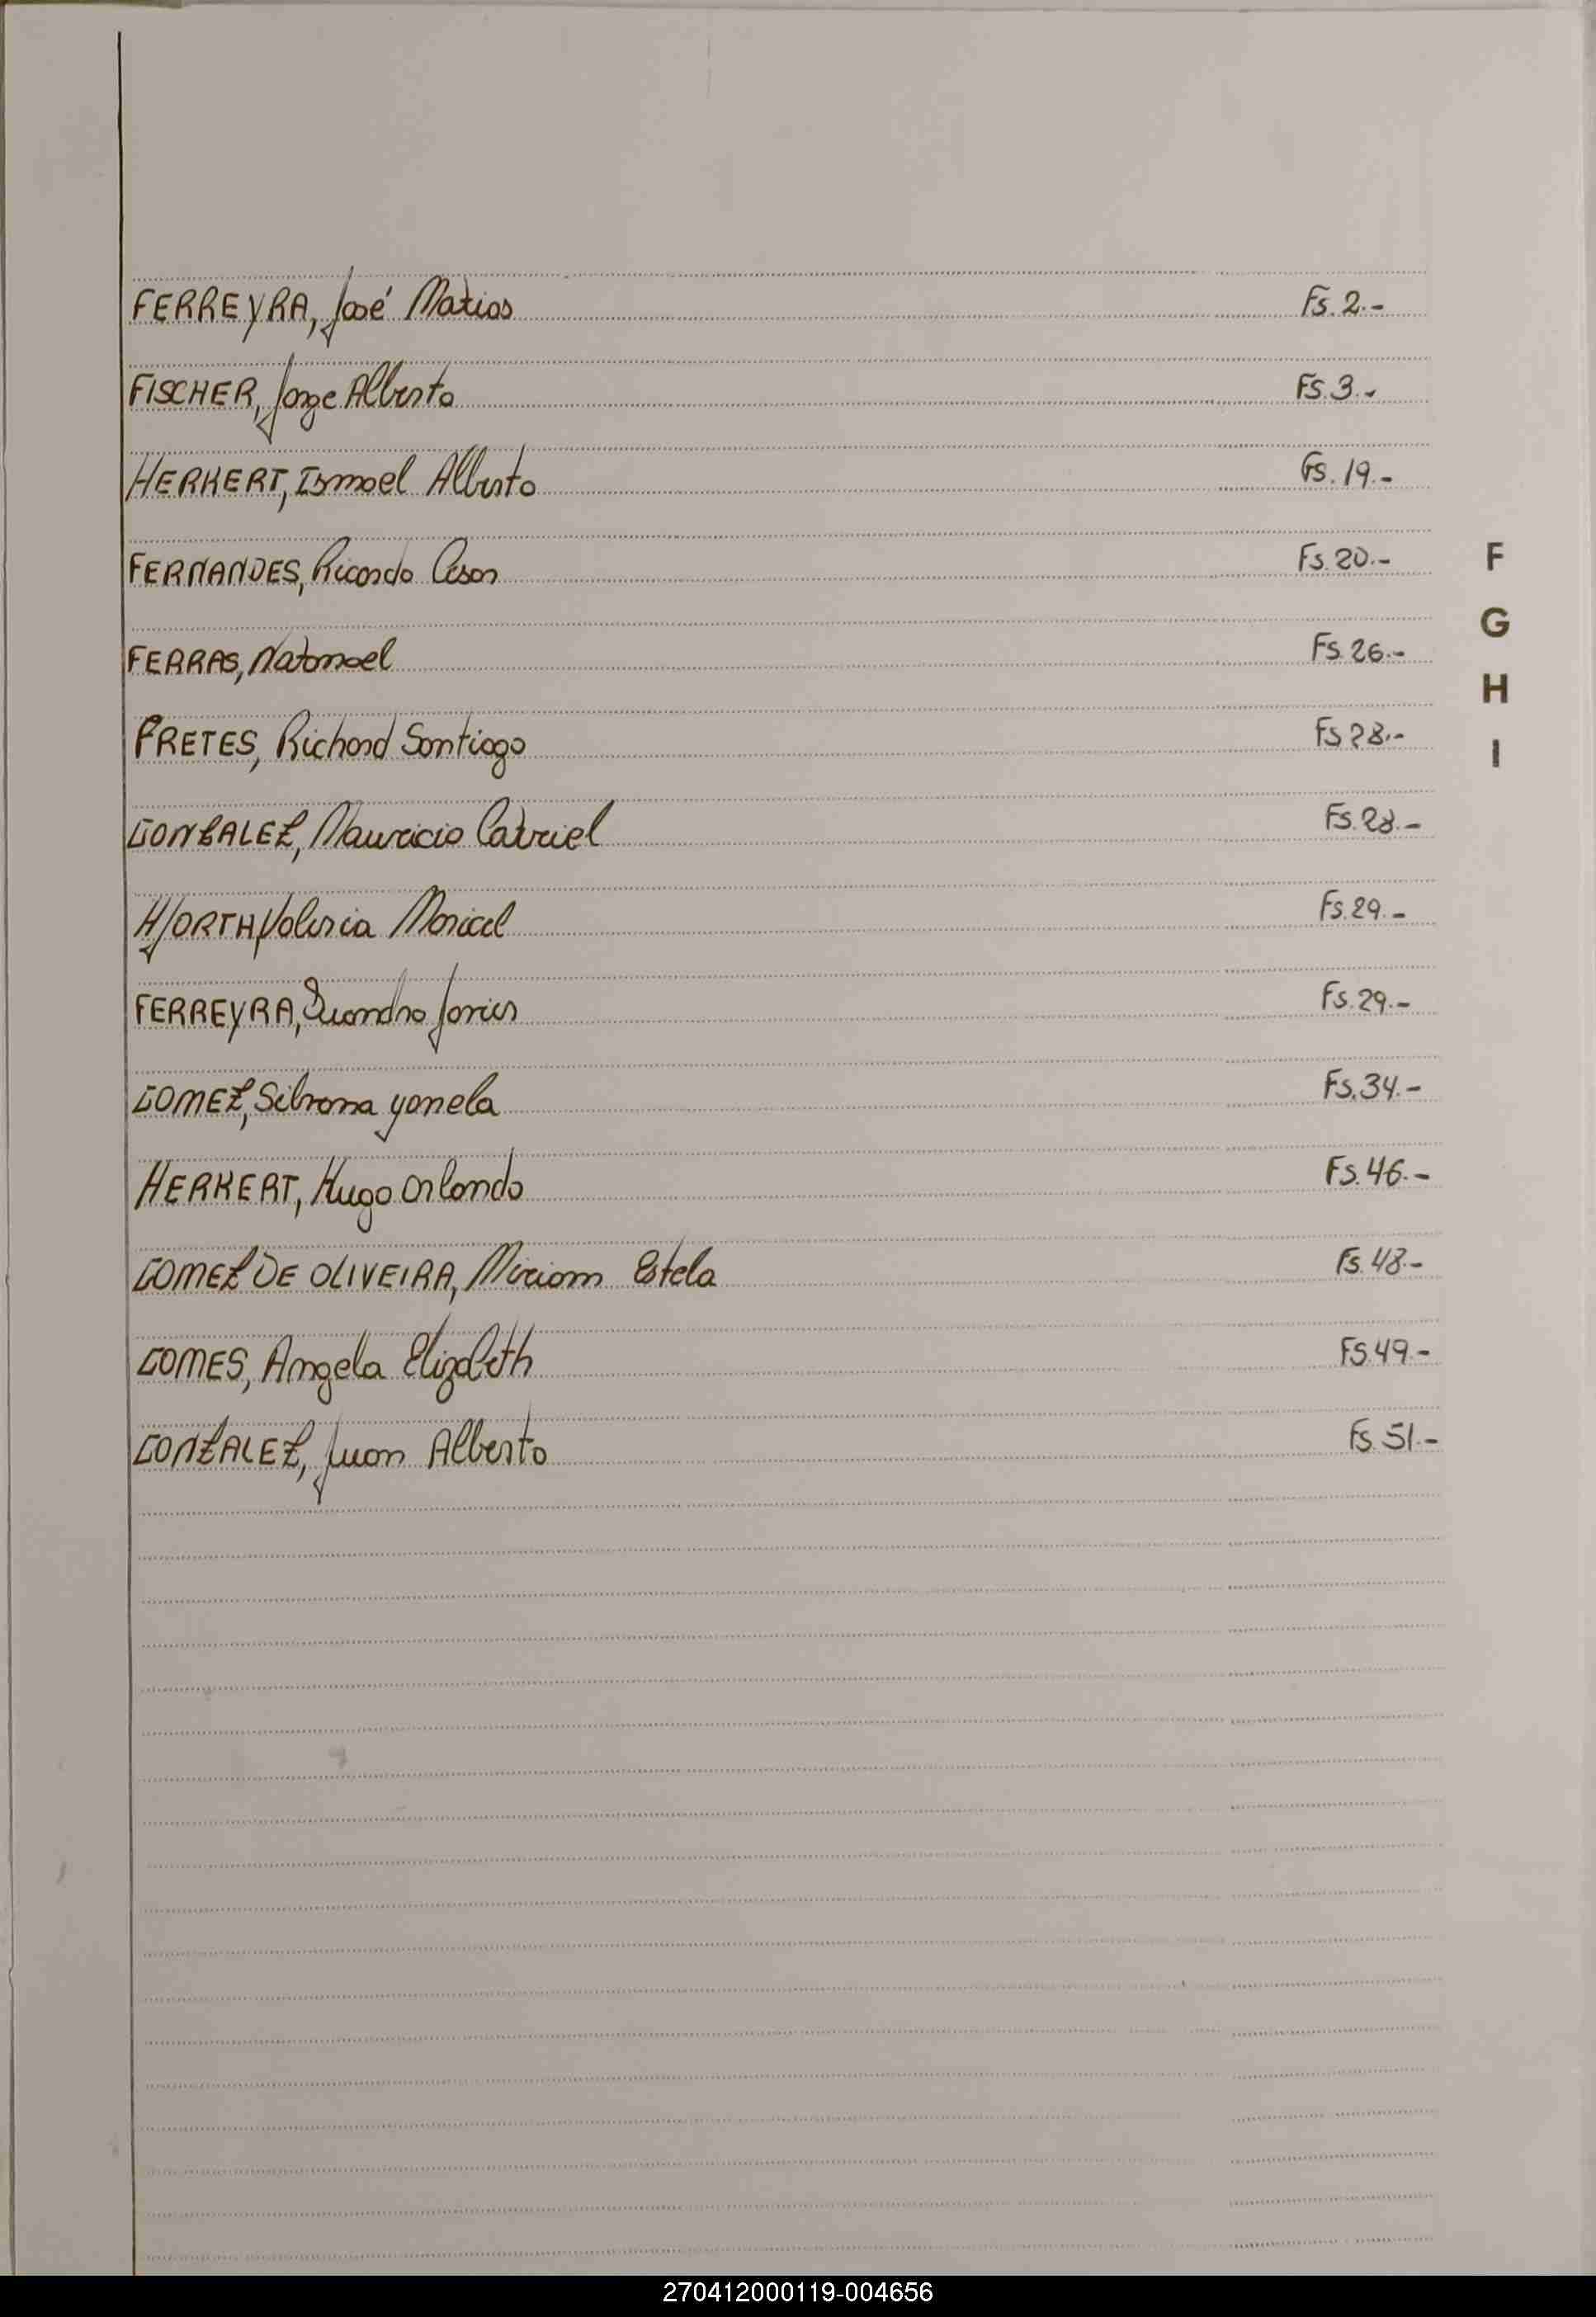 FERREYRA, José Matias Fs. 2.-
FISCHER, Jorge Alberto Fs. 3.-
HERKERT, Ismael Alberto Fs. 19.-
FERNANDES, Ricardo Cesar Fs. 20.-
FERRAS, Natanael Fs. 26.-
PRETES, Richard Santiago Fs 28.-
GONZALEZ, Mauricio Catriel Fs. 28.-
HJORTH, Valeria Maricel Fs. 29.-
FERREYRA, Javier Fs. 29.-
GOMEZ, Silvana yanela Fs. 34.-
HERKERT, Hugo Orlando Fs. 46.-
GOMEZ DE OLIVEIRA, Miriam Estela Fs. 48.-
GOMES, Angela Elizabeth Fs. 49.-
GONZALEZ, Juan Alberto Fs. 51.-
F
G
H
I
270412000119-004656